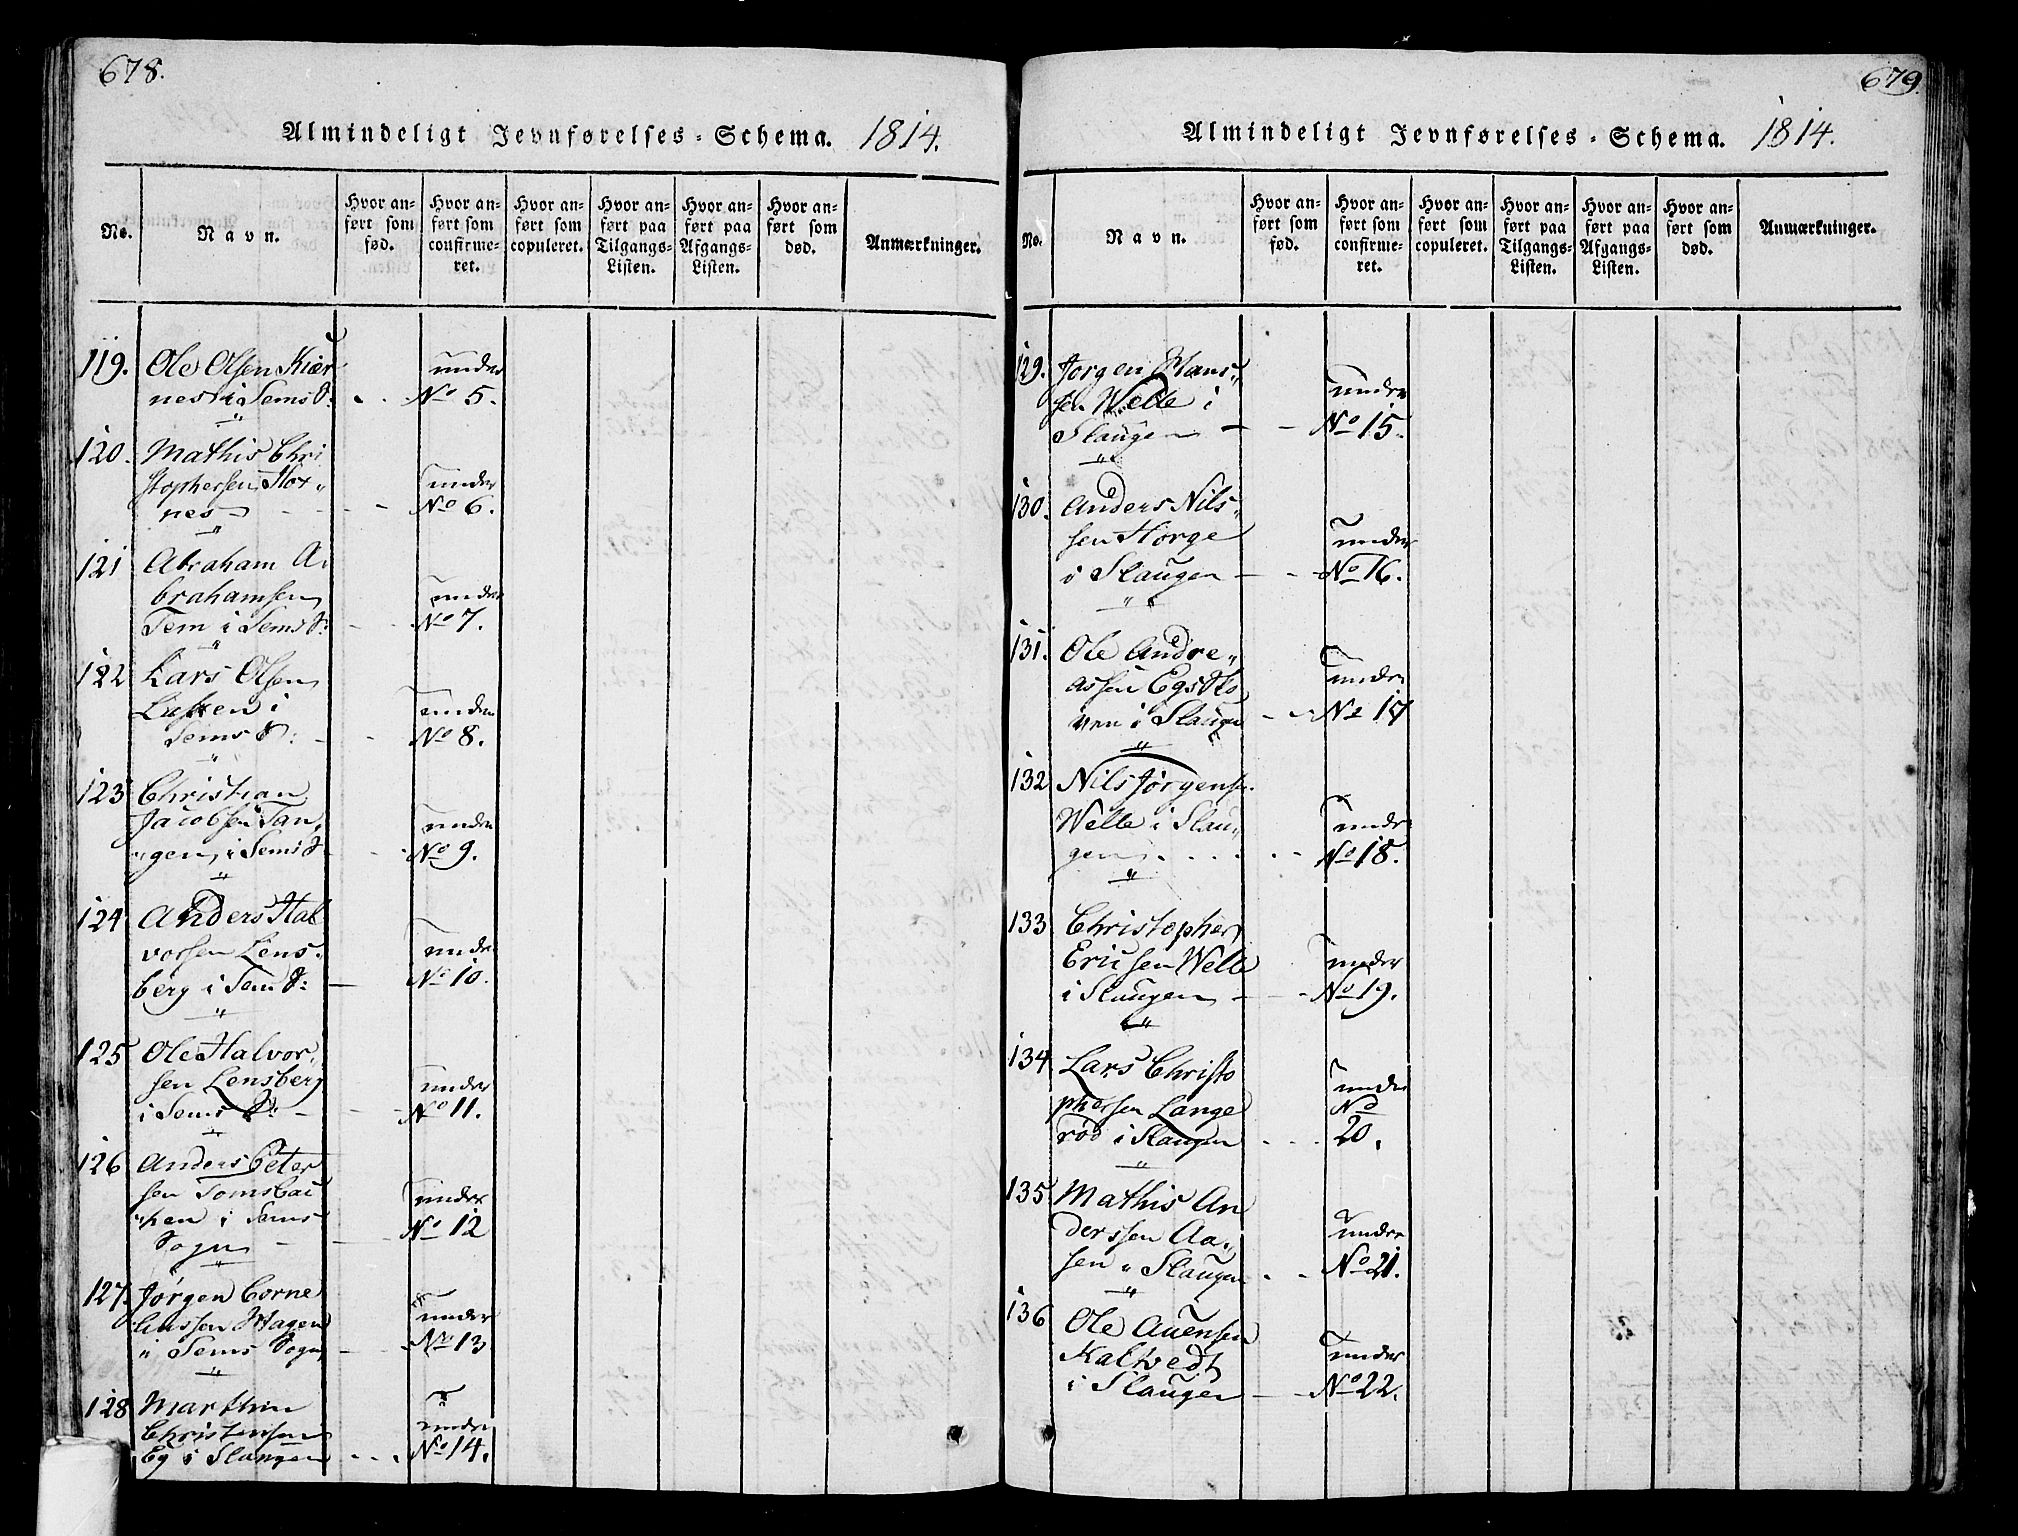 678.
Almindeligt Jevnførelses-Schema. 1814.
No.
Navn.
Hvor an-
ført som
fød.
Hvor an-
ført som
confirme-
ret.
Hvor an-
ført som
copuleret.
Hvor an-
ført paa
Tilgangs-
Listen.
Hvor an-
ført paa
Afgangs-
Listen.
Hvor an-
ført som
død.
Anmærkninger.
119. Ole Olsen Kiær under
nes i Sems S: No 5.
120. Mathis Chri
stophersen Hox„ under
nes No 6.
121 Abraham A„
brahamsen under
Sem i Sems S: No 7.
122 Lars Olsen
Lasken i under
Sems S: No 8.
123 Christian
Jacobsen Tan„ under
gen i Sems S No 9.
124 Anders Hal
vorsen Lens„ under
berg i Sem S: No 10.
125 Ole Halvor„
sen Lensberg under
i Sems S: No 11.
126 Anders Peter
sen Tomsbac under
ken i Sems No 12
Sogn
127. Jørgen Corne
liussen Hagen under
i Sems Sogn No 13
128 Marthin
Christensen under
Eg i Slaugen No 14.
679.
Almindeligt Jevnførelses-Schema. 1814.
No.
Navn.
Hvor an-
ført som
fød.
Hvor an-
ført som
confirme-
ret.
Hvor an-
ført som
copuleret.
Hvor an-
ført paa
Tilgangs-
Listen.
Hvor an-
ført paa
Afgangs-
Listen.
Hvor an-
ført som
død.
Anmærkninger.
129. Jorgen Hans„
sen Welle i under
Slaugen No 15.
130. Anders Nils„
sen Horge under
i Slaugen No 16.
131. Ole Andre„
assen Egs Ho under
ven i Slaugen No 17
132 Nils Jørgensen
Welle i Slau„ under
gen No 18.
133 Christopher
Ericsen Welle under
i Slaugen No 19.
134 Lars Christo
phersen Lange under No
rød i Slaugen 20.
135. Mathis An
derssen Aa„ under
sen i Slaugen No 21.
136 Ole Auensen
Kalvedt under
i Slaugen No 22.